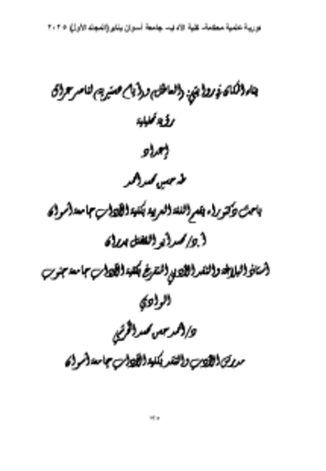 دورية علمية محكمة- كلية الآداب- جامعة أسوان يناير (المجلد الأول) ٢٠٢٥
بناء المكان في روايتي (العاطل وأيام هستيرية) لناصر عراق
رؤية تحليلية
إعداد
طه حسين محمد أحمد
باحث دكتوراه بقسم اللغة العربية بكلية الآداب جامعة أسوان
أ.د/ محمد أبو الفضل بدران
أستاذ البلاغة والنقد الأدبي المتفرغ بكلية الآداب جامعة جنوب
الوادي
د/ أحمد حسن محمد
مدرس الأدب والنقد بكلية الآداب جامعة أسوان